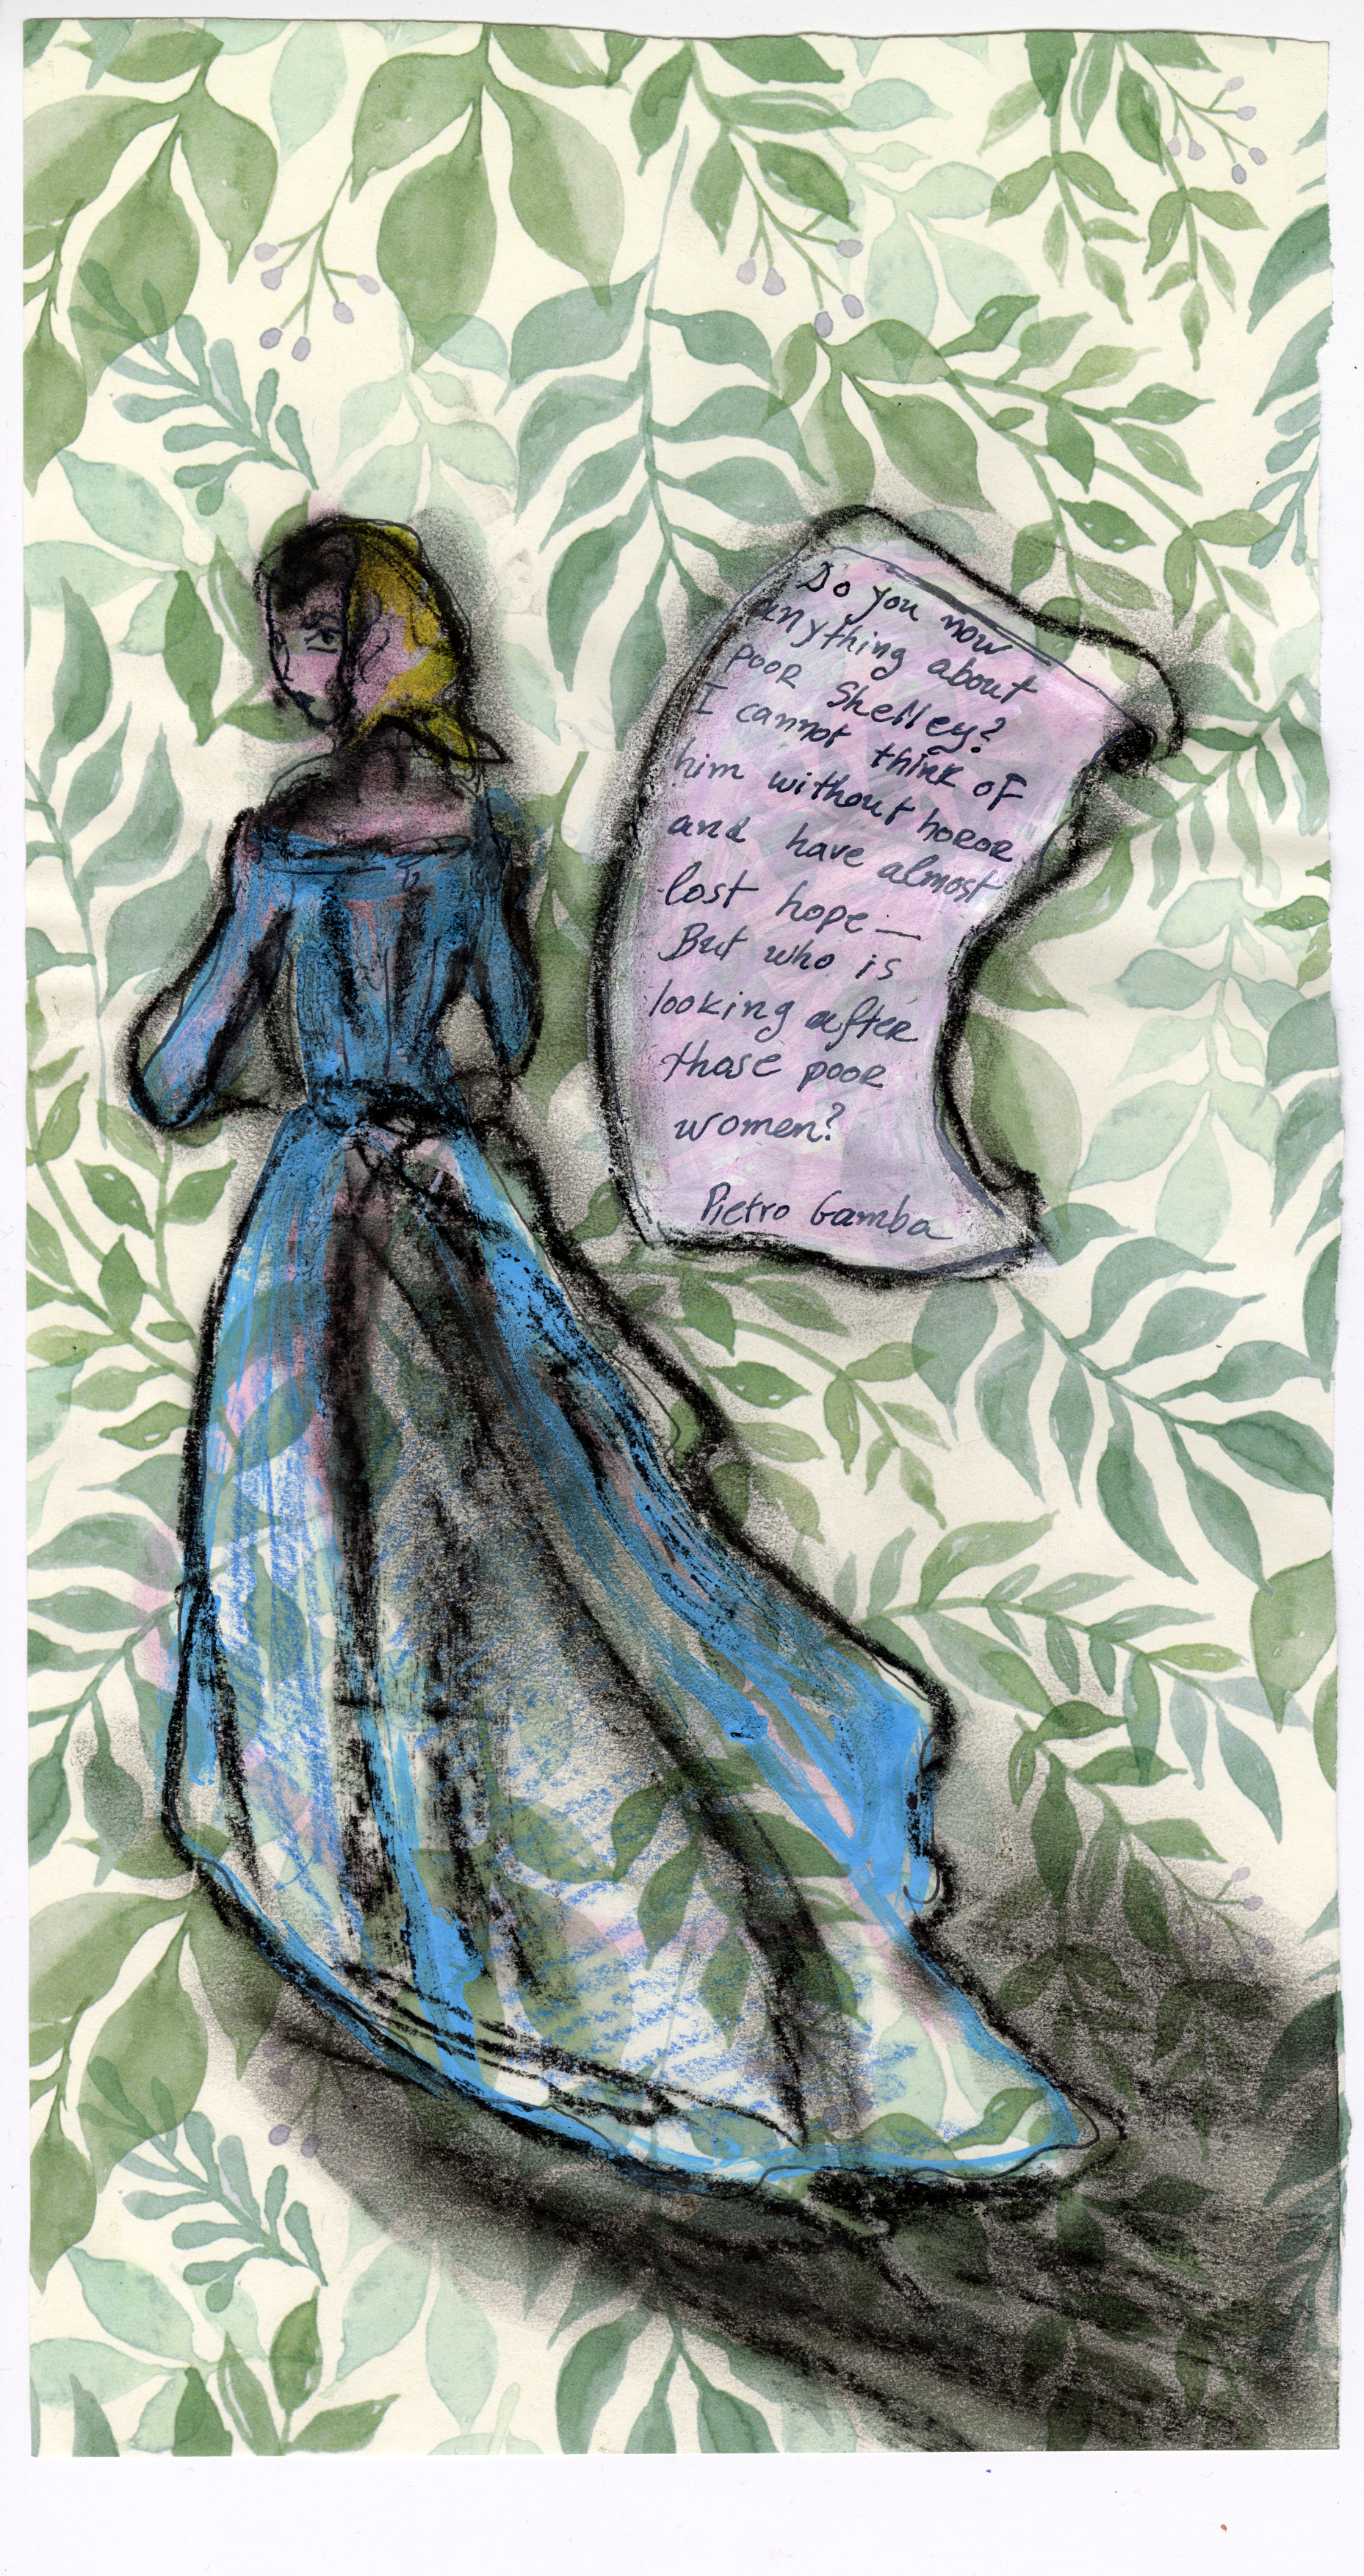 Do you now
anything about
poor Shelley?
I cannot think of
him without horor
and have almost
lost hope —
But who is
looking after
those poor
women?
Pietro Gamba